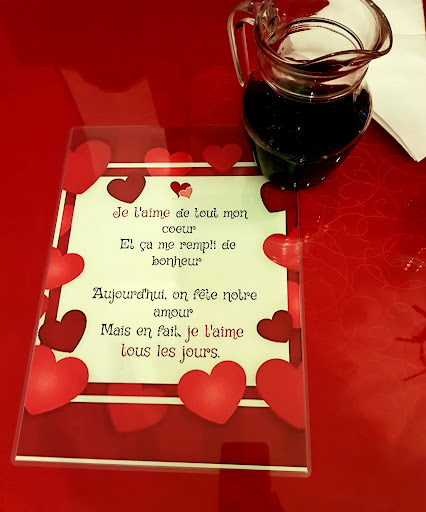 Je t'aime de tout mon
coeur
Et ça me rempli de
bonheur
Aujourd'hui, on fête notre
amour
Mais en fait, je t'aime
tous les jours.